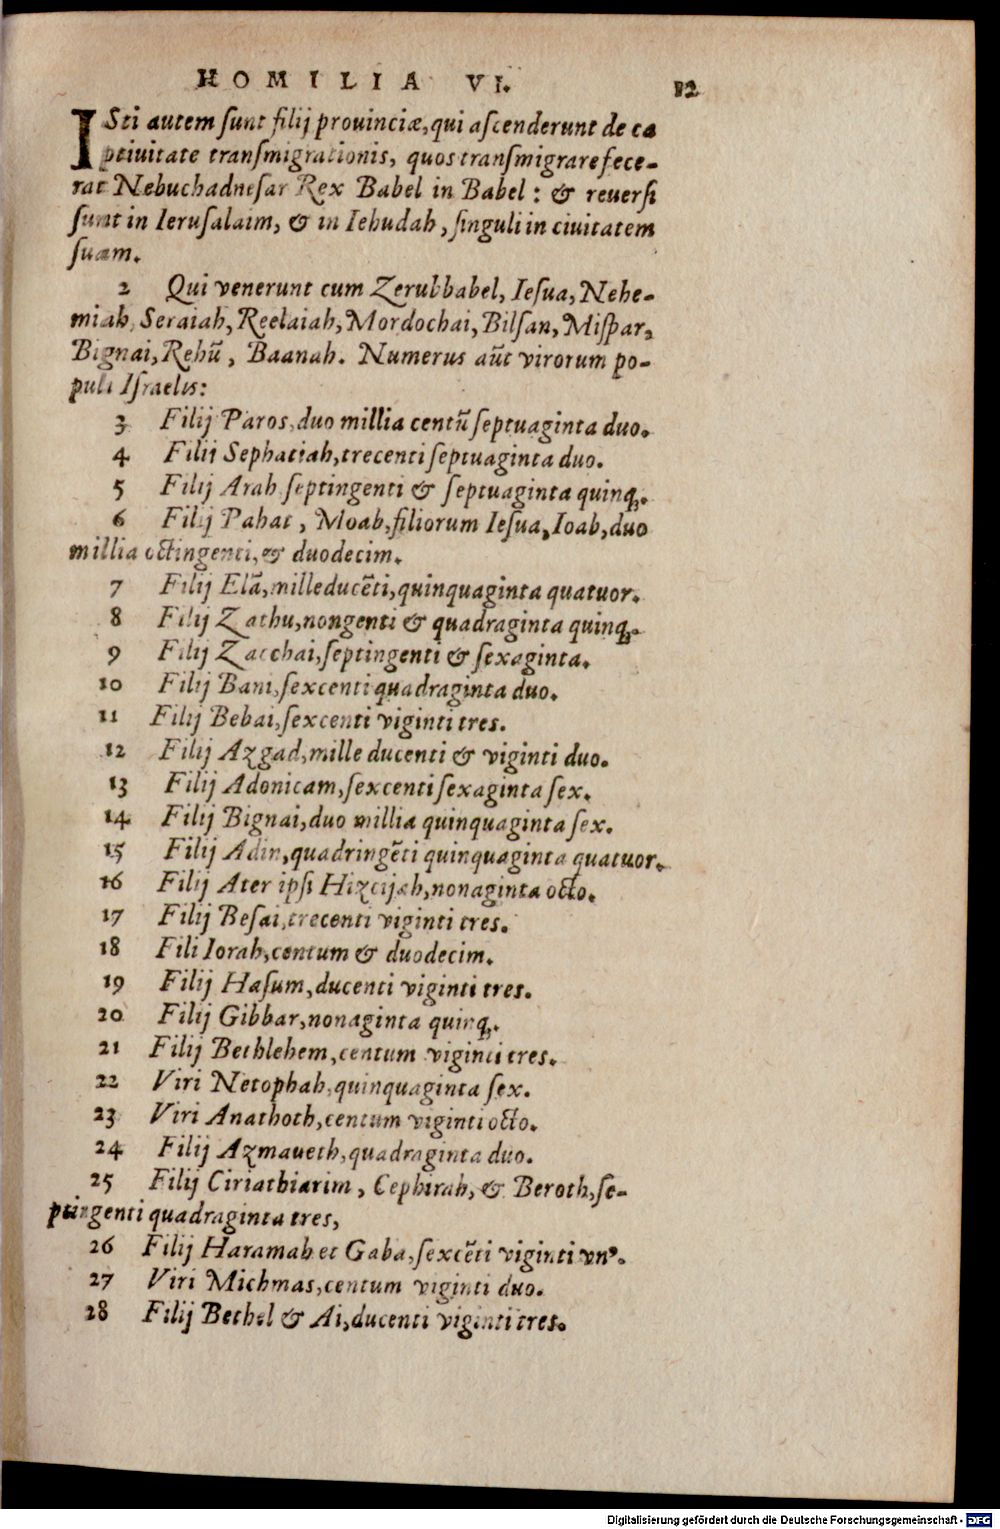 HOMILIA VI. 12
ISti autem ſunt filij prouinciæ, qui aſcenderunt de ca
ptiuitate tranſmigrationis, quos tranſmigrare fece-
rat Nebuchadneſar Rex Babel in Babel: & reuerſi
ſunt in Ieruſalaim, & in Iehudah, ſinguli in ciuitatem
ſuam.
2 Qui venerunt cum Zerubbabel, Ieſua, Nehe-
miah, Seraiah, Reelaiah, Mordochai, Bilſan, Miſpar,
Bignai, Rehū, Baanah. Numerus aūt virorum po-
puli Iſraelis:
3 Filij Paros, duo millia centū ſeptuaginta duo.
4 Filij Sephatiah, trecenti ſeptuaginta duo.
5 Filij Arah ſeptingenti & ſeptuaginta quinq;.
6 Filij Pahat, Moab, filiorum Ieſua, Ioab, duo
millia octingenti, & duodecim.
7 Filij Elā, mille ducēti, quinquaginta quatuor.
8 Filij Zathu, nongenti & quadraginta quinq;.
9 Filij Zacchai, ſeptingenti & ſexaginta.
10 Filij Bani, ſexcenti quadraginta duo.
11 Filij Bebai, ſexcenti viginti tres.
12 Filij Azgad, mille ducenti & viginti duo.
13 Filij Adonicam, ſexcenti ſexaginta ſex.
14 Filij Bignai, duo millia quinquaginta ſex.
15 Filij Adin, quadringēti quinquaginta quatuor.
16 Filij Ater ipſi Hizcijah, nonaginta octo.
17 Filij Beſai, trecenti viginti tres.
18 Fili Iorah, centum & duodecim.
19 Filij Haſum, ducenti viginti tres.
20 Filij Gibbar, nonaginta quinq;.
21 Filij Bethlehem, centum viginti tres.
22 Viri Netophah, quinquaginta ſex.
23 Viri Anathoth, centum viginti octo.
24 Filij Azmaueth, quadraginta duo.
25 Filij Ciriathiarim, Cephirah, & Beroth, ſe-
ptingenti quadraginta tres,
26 Filij Haramah et Gaba, ſexcēti viginti vnꝰ.
27 Viri Michmas, centum viginti duo.
28 Filij Bethel & Ai, ducenti viginti tres.
Digitalisierung gefördert durch die Deutsche Forschungsgemeinschaft - DFG